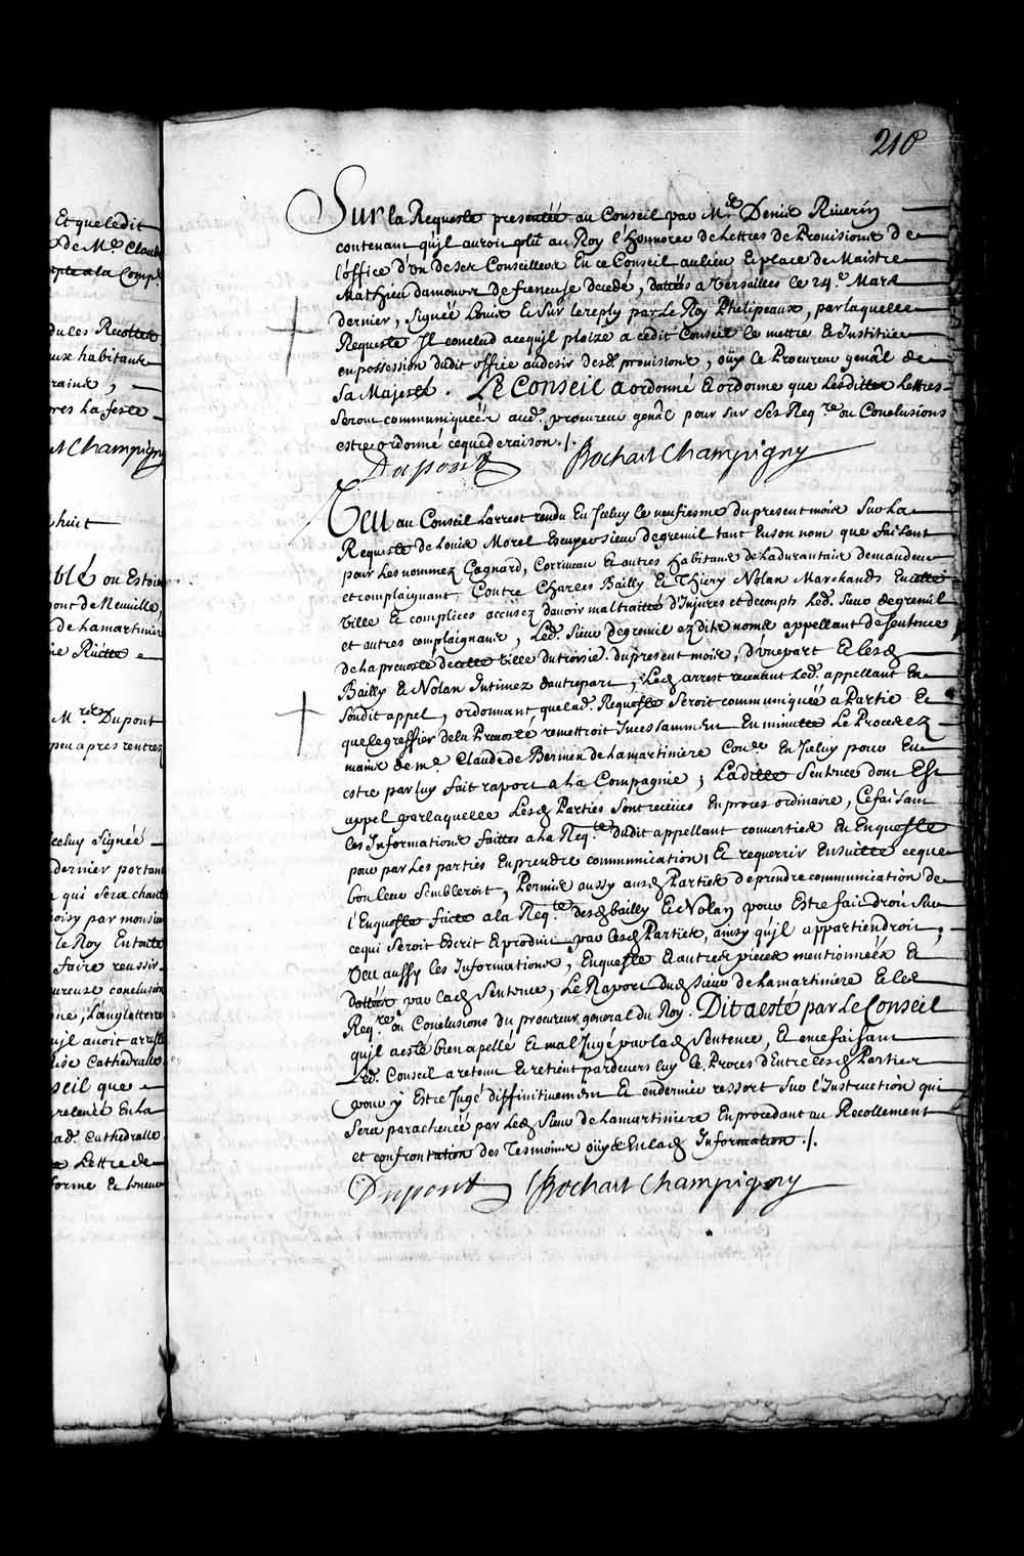 210
Et que ledit
de Me. Claude
Comp.
du les Recoltes
habitans
raine,
res la feste
Champigny
huit
blé ou Estoient
pont de Neuville,
de Lamartiniere
Mre Dupont
peu apres rentrez
Signée
dernier portant
qui sera chanté
par monsieur
le Roy En toute
faire reussir
conclusion
L'angleterre
avoit
Cathedralle
seil que
En la
lad. Cathedralle
Lettre de
forme et teneur
Sur la Requeste presentée au Conseil par Me. Denis Riverin
contenant qu'jl auroit plû au Roy l'honnorer de Lettres de Provisions de
l'office d'un de ses Conseillers En ce Conseil au lieu Et place de Maistre
Mathieu damours de freneuse decedé, dattées a Versailles le 24.e Mars
dernier, signée Louis Et sur le reply par Le Roy Phelipeaux, par laquelle
Requeste Il conclud a ce qu'jl plaize a cedit Conseil le mettre Et Instituer
en possession dudit office au desir desd. provisions, oüy Le Procureur genâl de
Sa Majesté. Le Conseil a ordonné Et ordonne que Lesdittes Lettres
Seront communiquées aud. procureur genâl pour sur Ses Reqre. ou Conclusions
estre ordonné ce que de raison ./.
Dupont Bochart Champigny
Veu au Conseil Larrest rendu En Jceluy Le neufiesme du present mois Sur La
Requeste de Louis Morel Escuyer sieur degremil tant En son nom que faisant
pour Les nommez Cagnard, Corriveau Et autres habitans de Ladurantaie demandeur
et complaignant, Contre Charles Bailly Et Thiery Nolan Marchands En cette
Ville Et complices accusez davoir maltraitté d'Injures et de coups Led. Sieur degremil
et autres complaignans, Led. Sieur degremil ezdits noms appellant de sentence
de la prevosté de cette ville du troisie. du present mois, d'une part Et Lesd
Bailly Et Nolan Intimez dautre part, Led arrest recevant Led. appellant En
Sondit appel, ordonnant que lad. Requeste seroit communiquée a Partie Et
que le greffier de la Prevosté remettroit Incessamment En minutte Le Procez ez
mains de me. Claude de Bermen de Lamartiniere Coner. En Jceluy pour En
estre par luy fait raport a La Compagnie, Laditte Sentence dont Est
appel par laquelle Lesd Parties sont receües En proces ordinaire, Ce faisant
Les Informations faittes a la Reqte. dudit appellant converties En Enqueste
pour par Les parties En prendre communication, Et requerrir Ensuitte ce que
bon leur sembleroit, Permis aussy ausd Parties de prendre communication de
l'Enqueste faite a la Reqte. desd bailly Et Nolan pour Estre fait droit Sur
ce qui seroit Escrit Et produit par lesd Parties, ainsy qu'jl appartiendroit,
Veu aussy les Informations, Enqueste Et autres pieces mentionnées Et
dattées par lad Sentence, Le Raport dud Sieur de Lamartiniere Et Les
Reqre. ou Conclusions du procureur general du Roy. Dit a esté par Le Conseil
qu'jl a esté bien apellé Et mal Jugé par lad Sentence, Et en ce faisant
Led. Conseil a retenu Et retient pardevers luy Le Proces d'Entre Lesd Parties
pour y Estre Jugé diffinitivement Et en dernier ressort Sur l'Instruction qui
Sera parachevée par Led Sieur de Lamartiniere En procedant au Recollement
et confrontation des Tesmoins oüys En lad Information ./.
Dupont Bochart Champigny